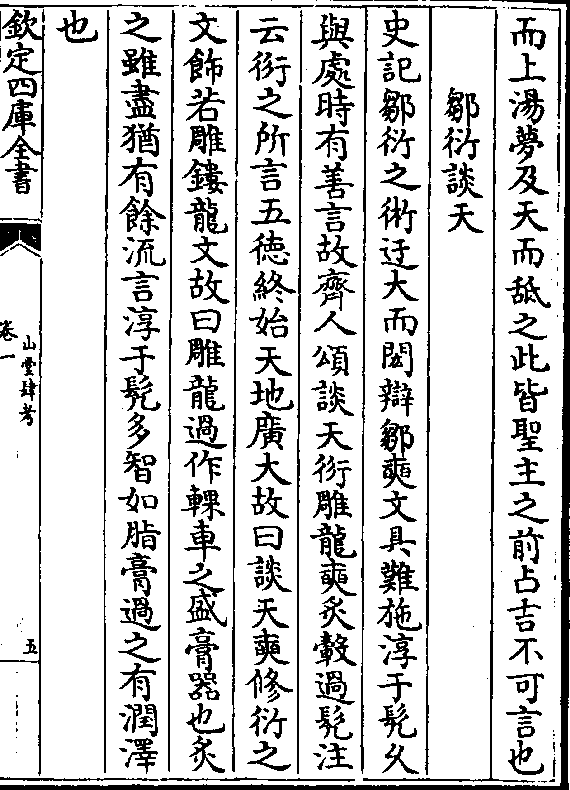 而上湯夢及天而舐之此皆聖主之前占吉不可言也
鄒衍談天
史記鄒衍之術迂大而閎辯鄒奭文具難施淳于髡久
與處時有善言故齊人頌談天衍雕龍奭炙轂過髡注
云衍之所言五德終始天地廣大故曰談天奭修衍之
文飾若雕鏤龍文故曰雕龍過作輠車之盛膏器也炙
之雖盡猶有餘流言淳于髡多智如脂膏過之有潤澤
也
欽定四庫全書
卷一
山堂肆考
五